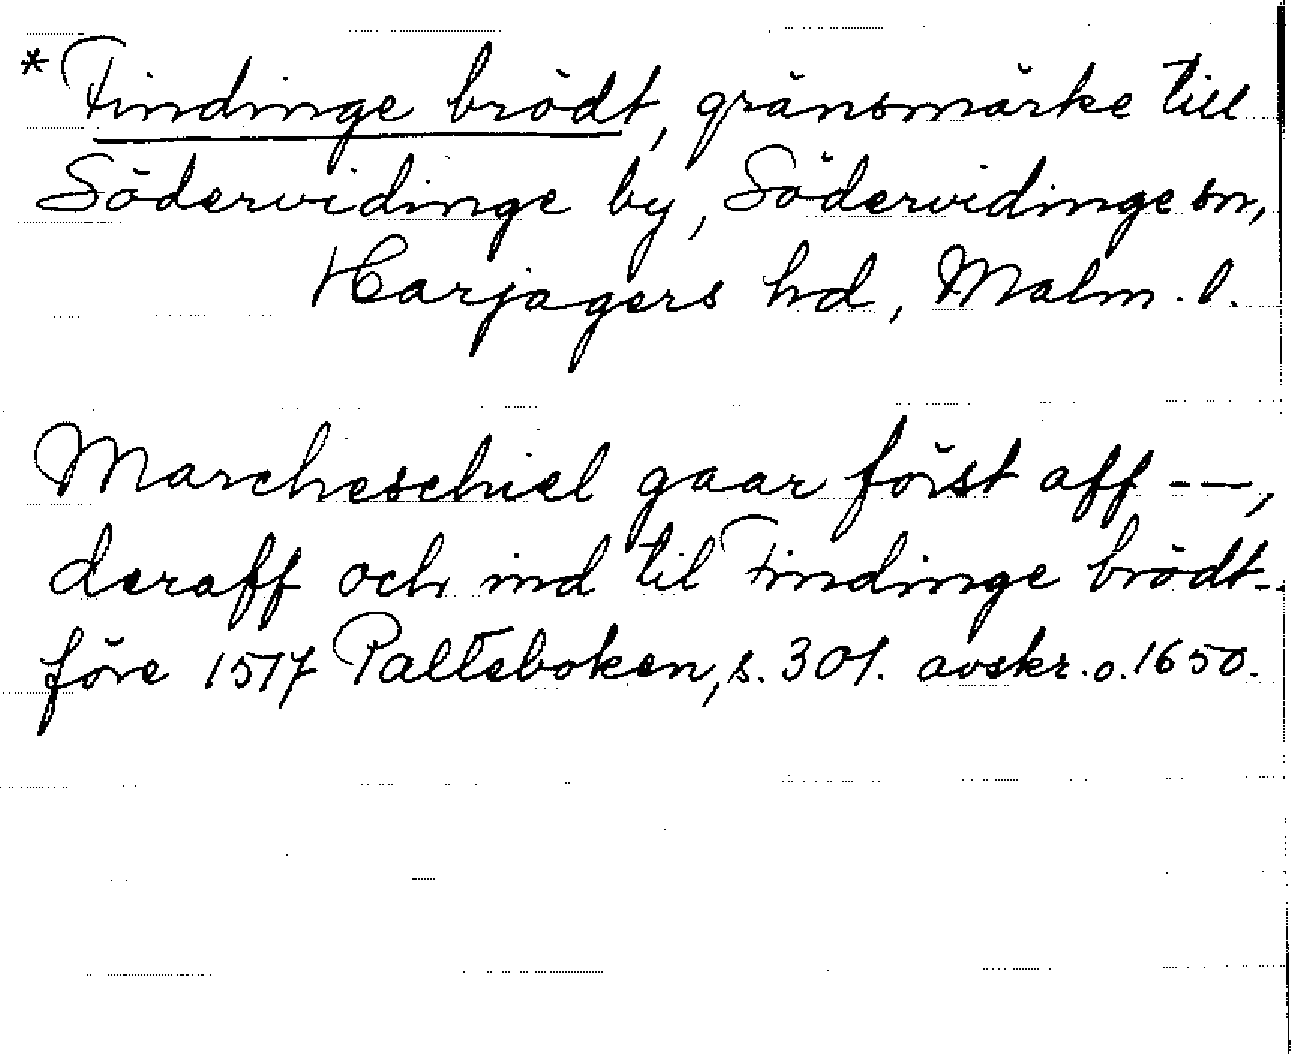 *Findinge brödt, gränsmärke till
Södervidinge by, Södervidinge sn,
Harjagers hd, Malm. l.
Marcheschiel gaar först aff --,
deraff och ind til Findinge brödt--
före 1517 Palteboken, s. 301. avskr. o. 1650.